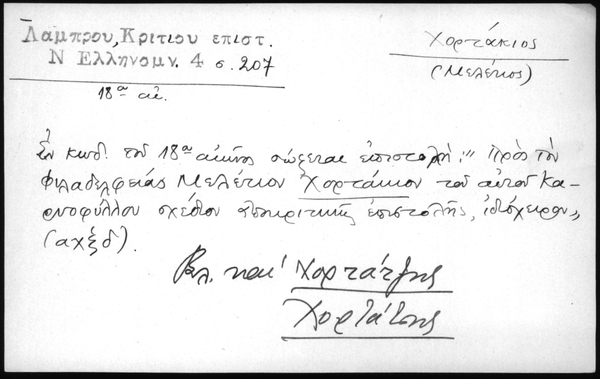 Λαμπρου, Κριτιου επιστ.
Ν Ελληνομν. 4 σ. 207
18ης αἰ.
Χορτάκιος
(Μελέτιος)
Ἐν κωδ. τοῦ 18ης αἰῶνος σώζεται ἐπιστολή: "Πρὸς τὸν
Φιλαδελφείας Μελέτιον Χορτάκιον τοῦ αὐτοῦ Κα-
ρυοφύλλου σχέδιον ἀποκριτικῆς ἐπιστολῆς, ἰδιόχειρον"
(αχξδ).
Βλ. καὶ Χορτάτζης
Χορτάτσης